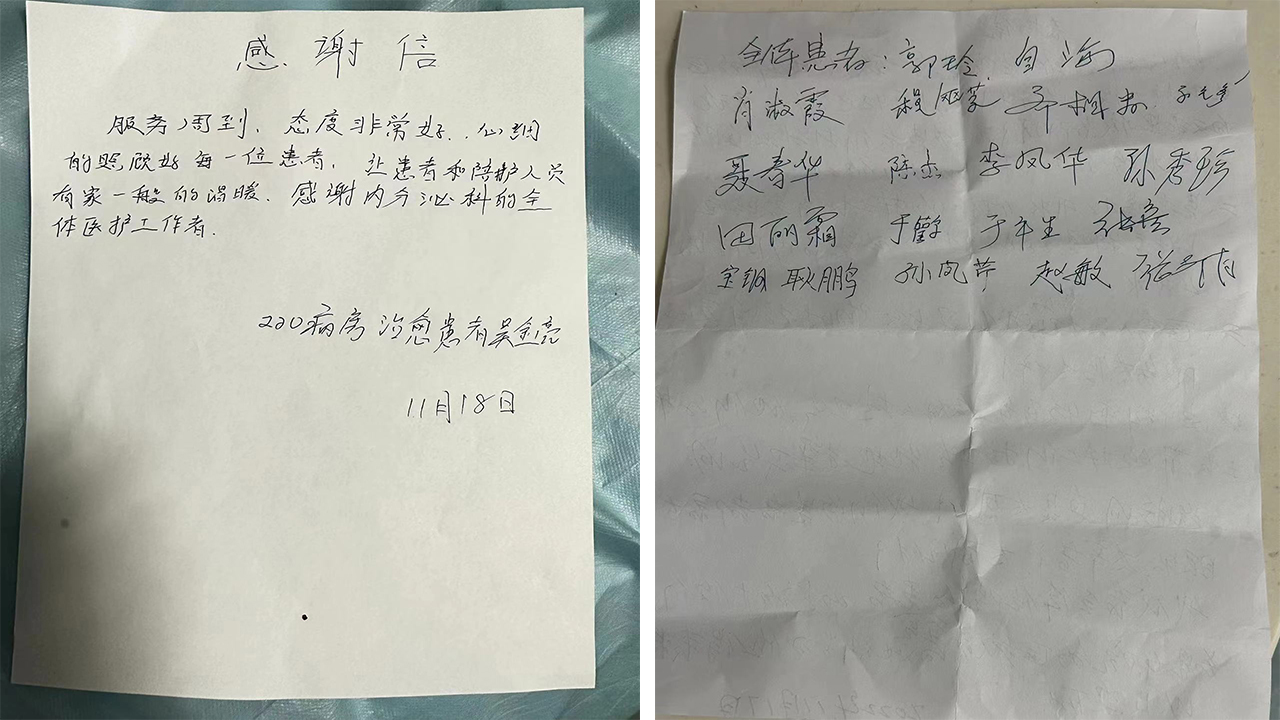 感谢信
服务周到、态度非常好、心细
的照顾好每一位患者、让患者和陪护人员
有家一般的温暖、感谢内分泌科的全
体医护工作者.
220病房治愈患者吴金亮
11月18日
全体患者:郭玲
肖淑霞
聂春华 陈杰 李凤华 孙秀珍
田丽霜 于 于年生
耿鹏 孙凤芹 赵敏